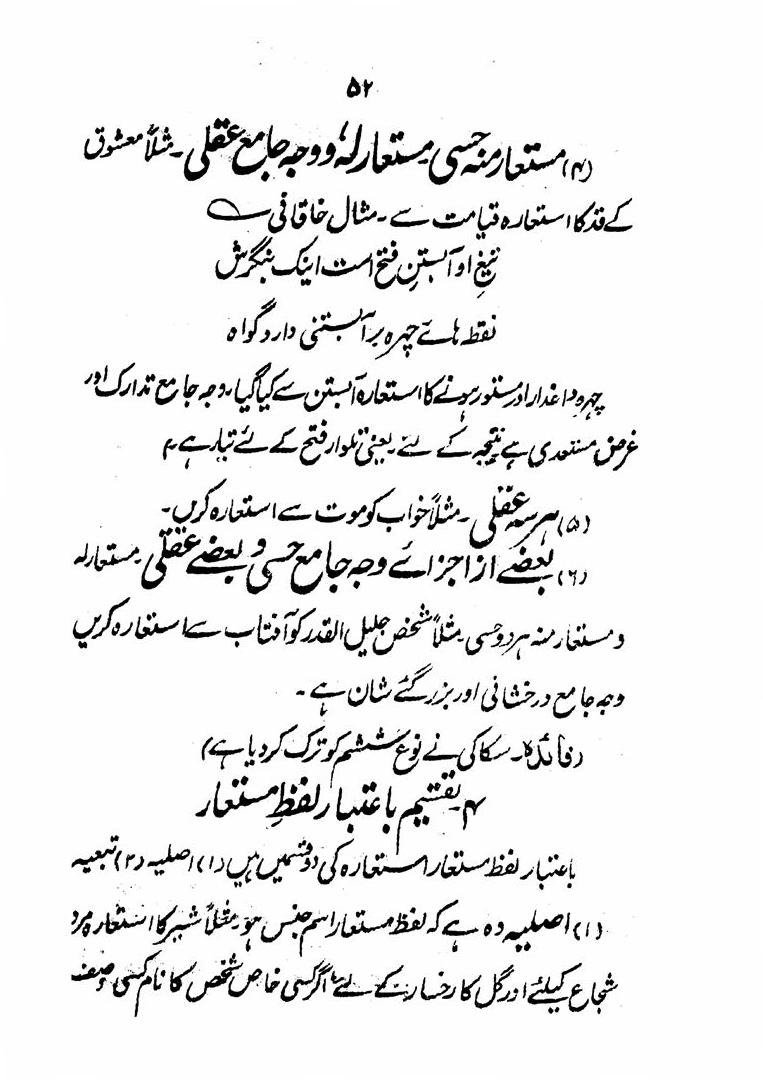 ۵۲
(۴) مستعار منہ حسی مستعار لہٗ ووجہ جامع عقلی۔ مثلاً معشوق
کے قد کا استعارہ قیامت سے۔ مثال خاقانی ؎
تیغِ او آبستنِ فتح است اینک بنگرش
نقطہ ہائے چہرہ بر آبستنی دارد گواہ
چہرہ داغدار اور مستور ہونے کا استعارہ آبستن سے کیا گیا۔ وجہ جامع تدارک اور
غرض مستعدی ہے نتیجہ کے لئے۔ یعنی تلوار فتح کے لئے تیار ہے۔
(۵) ہر سہ عقلی۔ مثلاً خواب کو موت سے استعارہ کریں۔
(۶) بعضے از اجزائے وجہ جامع حسی و بعضے عقلی۔ مستعار لہ
و مستعار منہ ہر دو حسی۔ مثلاً شخص جلیل القدر کو آفتاب سے استعارہ کریں
وجہ جامع درخشانی اور بزرگئے شان ہے۔
(فائدہ۔ سکاکی نے نوع ششم کو ترک کر دیا ہے)
۴۔ تقسیم باعتبار لفظِ مستعار
باعتبار لفظ مستعار استعارہ کی دو قسمیں ہیں (۱) اصلیہ (۲) تبعیہ
(۱) اصلیہ وہ ہے کہ لفظ مستعار اسم جنس ہو۔ مثلاً شیر کا استعارہ مرد
شجاع کیلئے اور گل کا رخسار کے لئے اگر کسی خاص شخص کا نام کسی وصف